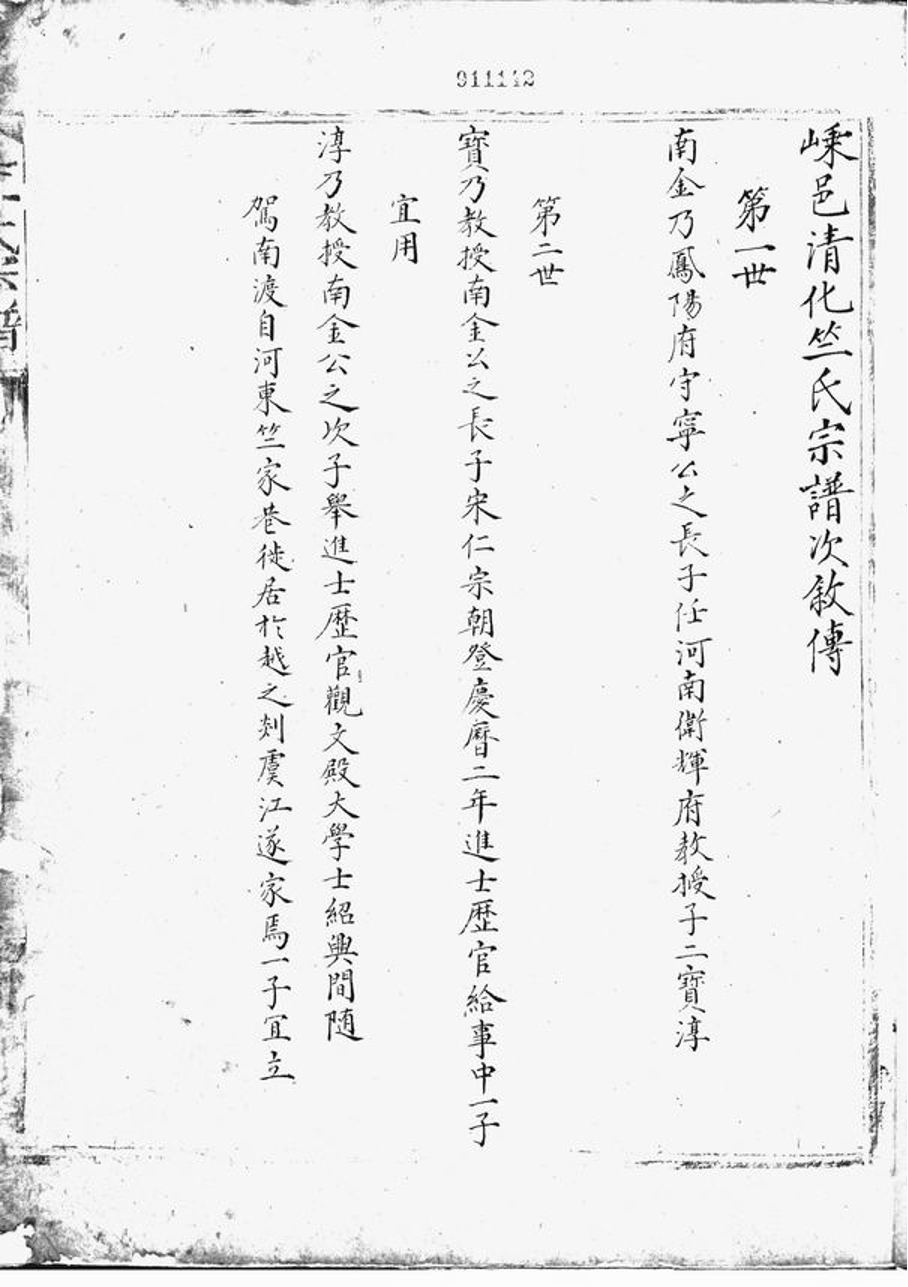 911142
嵊邑清化竺氏宗譜次敘傳
第一世
南金乃鳳陽府守寧公之長子任河南衛輝府教授子二寶淳
第二世
寶乃教授南金公之長子宋仁宗朝登慶曆二年進士歷官給事中一子
宜用
淳乃教授南金公之次子舉進士歷官觀文殿大學士紹興間随
駕南渡自河東竺家巷徙居於越之剡虞江遂家焉一子宜立
氏宗譜